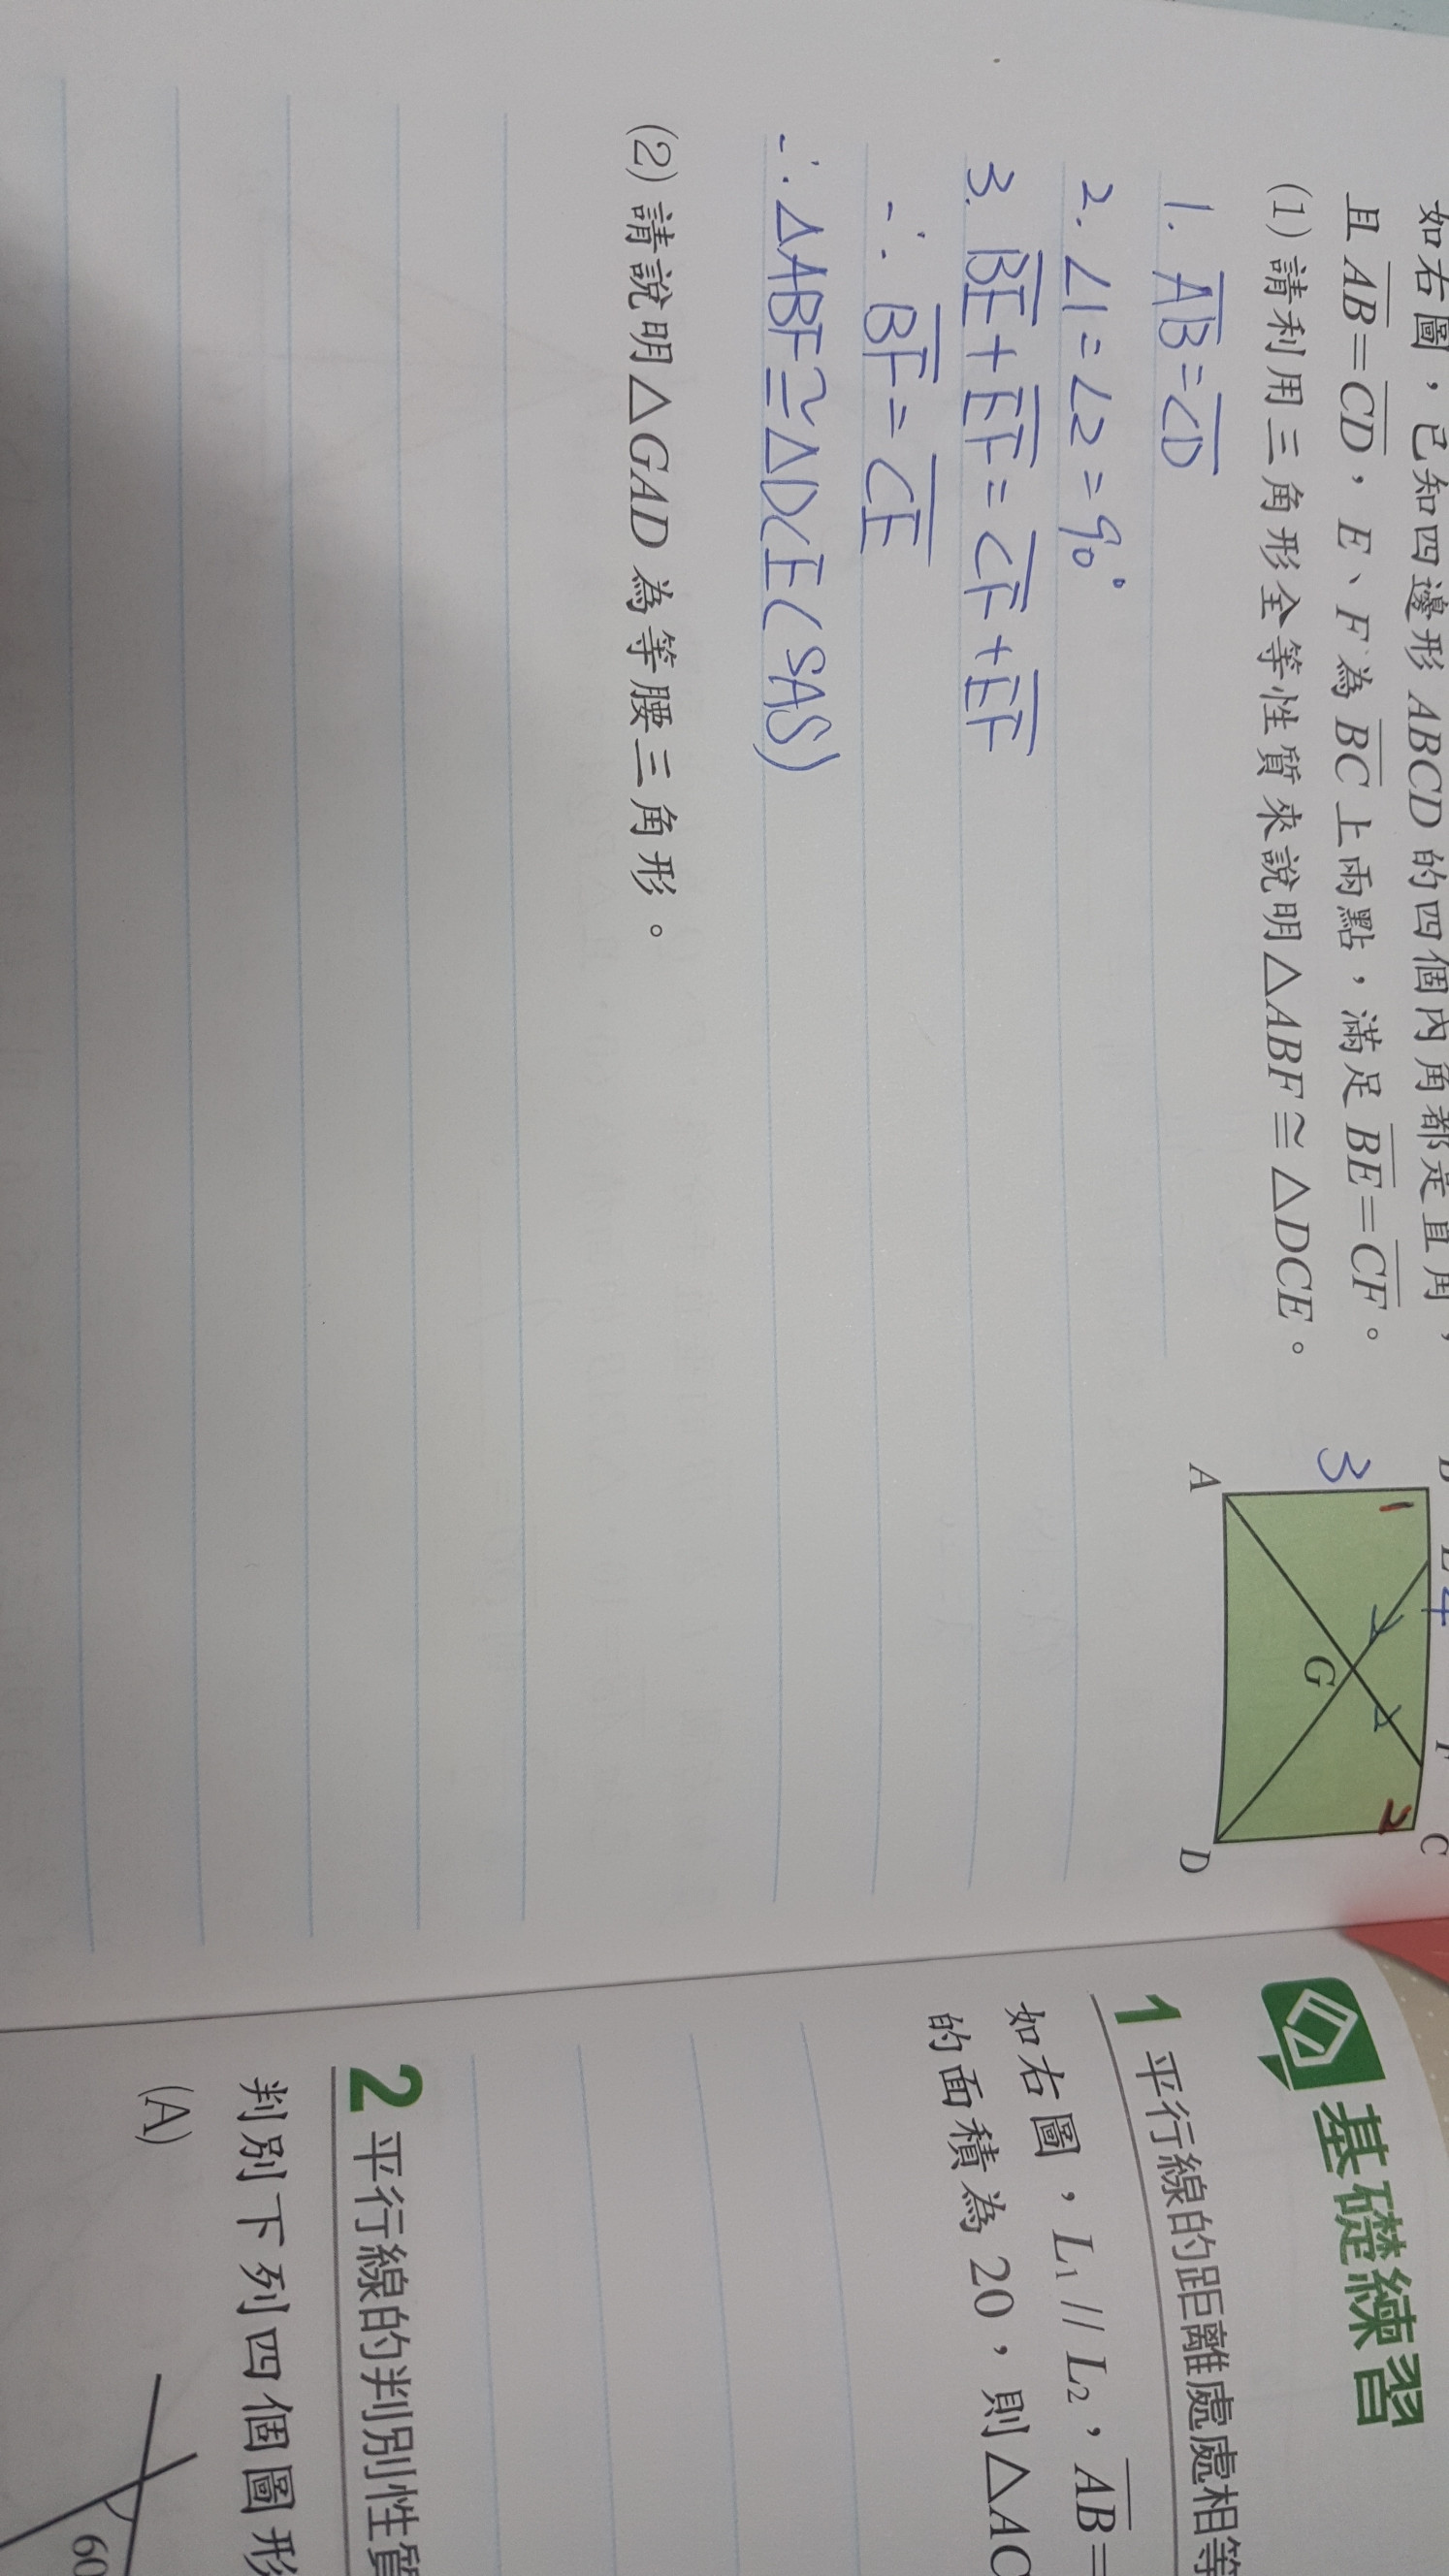 如右圖，已知四邊形 ABCD 的四個內角都是直角，
且 AB=CD，E、F 為 BC 上兩點，滿足 BE=CF。
(1) 請利用三角形全等性質來說明△ABF≅△DCE。
1. AB=CD
2. ∠1=∠2=90°
3. BE+EF=CF+EF
∴ BF=CE
∴ △ABF≅△DCE(SAS)
(2) 請說明△GAD 為等腰三角形。
3
1
4
2
A
G
F
C
D
基礎練習
1 平行線的距離處處相等
如右圖，L₁ // L₂，AB=
的面積為 20，則△AC
2 平行線的判別性質
判別下列四個圖形
(A)
60